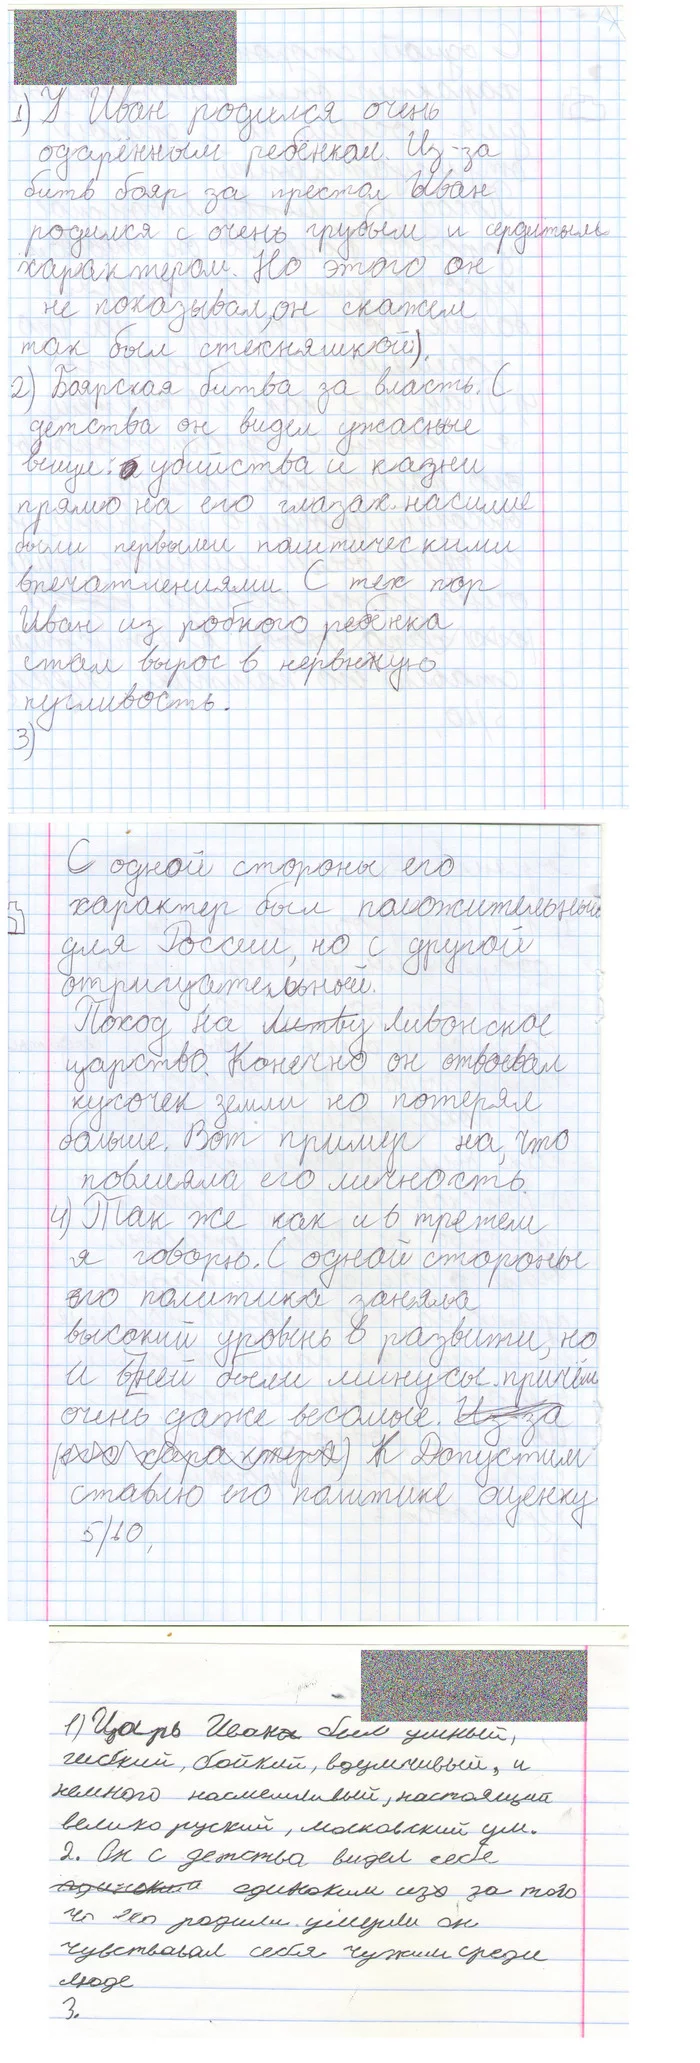 1) У Иван родился очень
одарённым ребёнкам. Из-за
битв бояр за престол Иван
родился с очень грубым и сердитым
характером. Но этого он
не показывал, он скажем
так был стекняшкой).
2) Боярская битва за власть. С
детства он видел ужасные
вещи: убийства и казни
прямо на его глазах. насилие
были первыми политическими
впечатлениями. С тех пор
Иван из робкого ребёнка
стал вырос в нервную
пугливость.
3)
С одной стороны его
характер был положительный
для России, но с другой
отрицательный.
Поход на Литву Ливонское
царство. Конечно он отвоевал
кусочек земли но потерял
больше. Вот пример на, что
повлияла его личность.
4) Так же как и в третем
я говорю. С одной стороны
его политика заняла
высокий уровень в развити, но
и в ней были минусы. причём
очень даже весомые. Из-за
его характера) К Допустим
ставлю его политике оценку
5/10,
1) Царь Иван был умный,
гибкий, бойкий, вдумчивый, и
немного насмешливый, настоящий
велико руский, московский ум.
2. Он с детства видел себе
одиноким изо за того
что его родили умерли он
чувствовал себя чужим среди
люде
3.